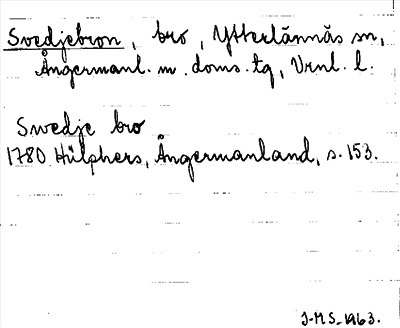 Svedjebron, bro, Ytterlännäs sn,
Ångermanl. m. doms. tg, Vrnl. l.
Swedje bro
1780 Hülphers, Ångermanland, s. 153.
J-M S. 1963.